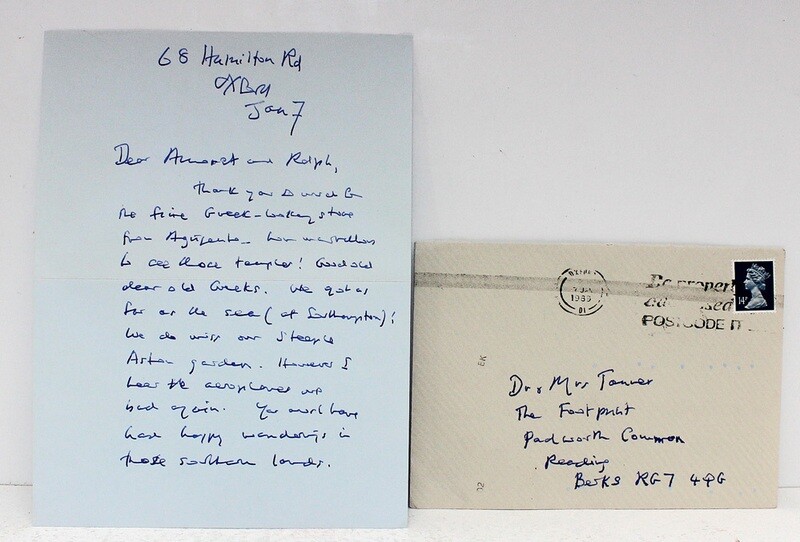 68 Hamilton Rd
Oxford
Jan 7
Dear Amoret and Ralph,
Thank you so much for
the fine Greek-looking stone
from Agrigento - how marvellous
to see those temples! Good old
dear old Greeks. We got as
far as the sea (at Southampton)!
We do miss our Steeple
Aston garden. However I
hear the aeroplanes are
bad again. You must have
had happy wanderings in
those southern lands.
OXFORD
JAN
1986
Be properly
addressed
POSTCODE IT
14P
Dr & Mrs Tanner
The Footprint
Padworth Common
Reading
Berks RG7 4QG
EK
12